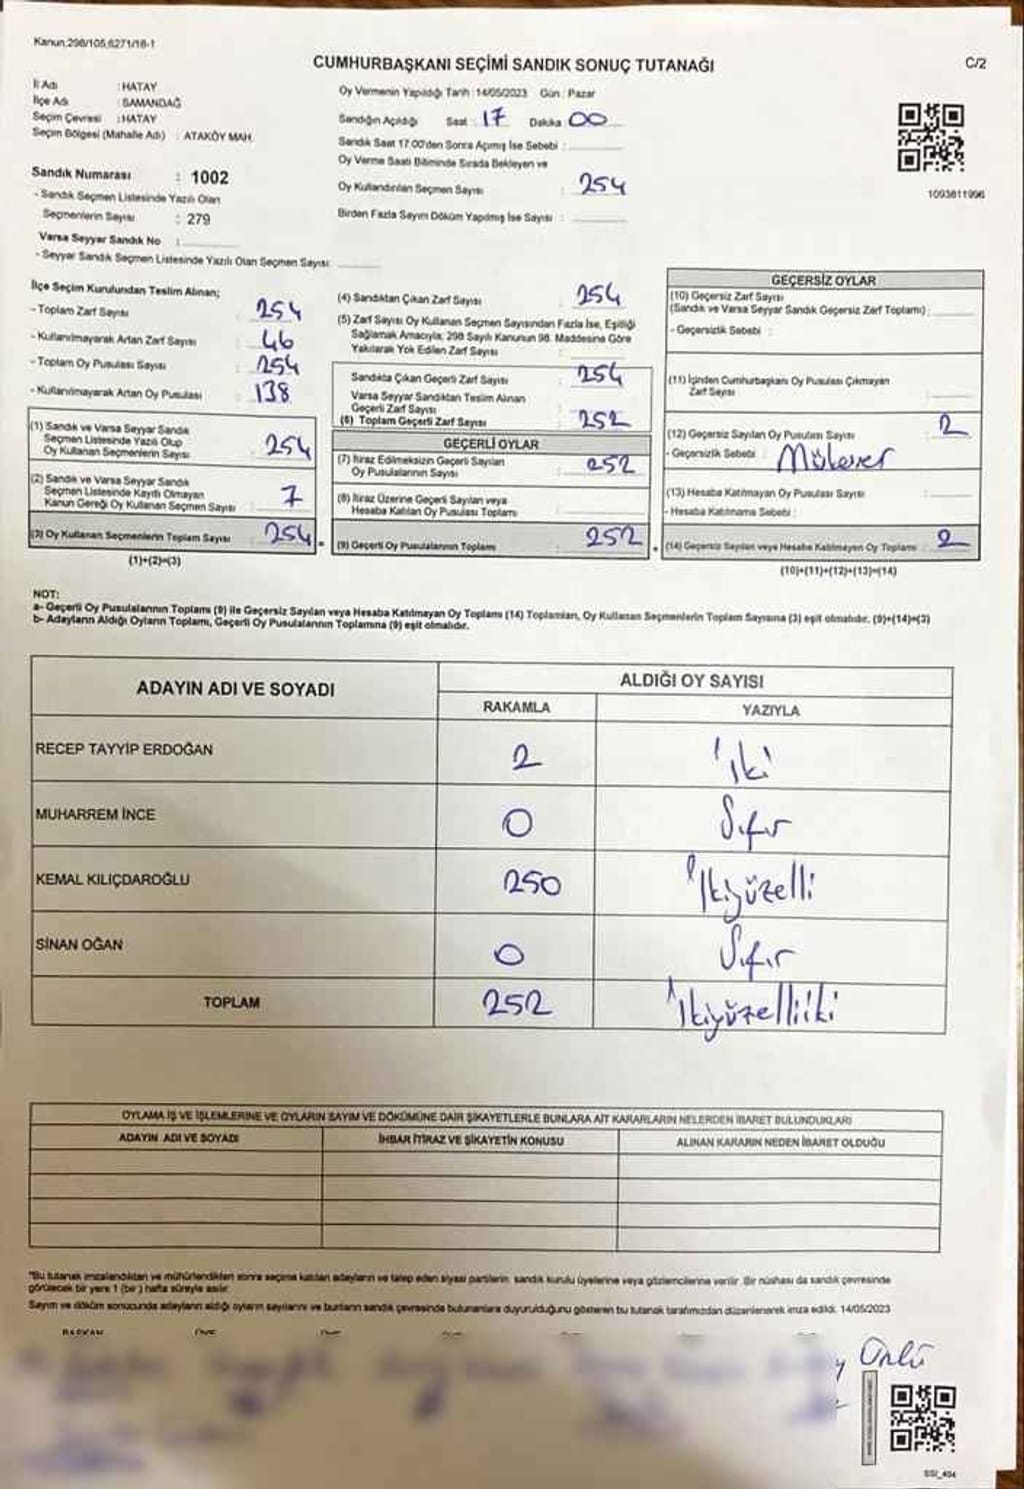 Kanun:298/105,6271/18-1
CUMHURBAŞKANI SEÇİMİ SANDIK SONUÇ TUTANAĞI
C/2
İl Adı : HATAY
İlçe Adı : SAMANDAĞ
Seçim Çevresi : HATAY
Seçim Bölgesi (Mahalle Adı) : ATAKÖY MAH.
Sandık Numarası : 1002
- Sandık Seçmen Listesinde Yazılı Olan
Seçmenlerin Sayısı : 279
Varsa Seyyar Sandık No :
- Seyyar Sandık Seçmen Listesinde Yazılı Olan Seçmen Sayısı:
Oy Vermenin Yapıldığı Tarih : 14/05/2023 Gün : Pazar
Sandığın Açıldığı Saat : 17 Dakika : 00
Sandık Saat 17.00'den Sonra Açılmış İse Sebebi :
Oy Verme Saati Bitiminde Sırada Bekleyen ve
Oy Kullandırılan Seçmen Sayısı : 254
Birden Fazla Sayım Döküm Yapılmış İse Sayısı :
1093811996
İlçe Seçim Kurulundan Teslim Alınan;
- Toplam Zarf Sayısı : 254
- Kullanılmayarak Artan Zarf Sayısı : 46
- Toplam Oy Pusulası Sayısı : 254
- Kullanılmayarak Artan Oy Pusulası : 138
(1) Sandık ve Varsa Seyyar Sandık
Seçmen Listesinde Yazılı Olup
Oy Kullanan Seçmenlerin Sayısı : 254
(2) Sandık ve Varsa Seyyar Sandık
Seçmen Listesinde Kayıtlı Olmayan
Kanun Gereği Oy Kullanan Seçmen Sayısı : 7
(3) Oy Kullanan Seçmenlerin Toplam Sayısı : 254 =
(1)+(2)=(3)
(4) Sandıktan Çıkan Zarf Sayısı : 254
(5) Zarf Sayısı Oy Kullanan Seçmen Sayısından Fazla İse, Eşitliği
Sağlamak Amacıyla; 298 Sayılı Kanunun 98. Maddesine Göre
Yakılarak Yok Edilen Zarf Sayısı :
Sandıkta Çıkan Geçerli Zarf Sayısı : 254
Varsa Seyyar Sandıktan Teslim Alınan
Geçerli Zarf Sayısı
(6) Toplam Geçerli Zarf Sayısı : 252
GEÇERLİ OYLAR
(7) İtiraz Edilmeksizin Geçerli Sayılan
Oy Pusulalarının Sayısı : 252
(8) İtiraz Üzerine Geçerli Sayılan veya
Hesaba Katılan Oy Pusulası Toplamı :
(9) Geçerli Oy Pusulalarının Toplamı : 252
GEÇERSİZ OYLAR
(10) Geçersiz Zarf Sayısı
(Sandık ve Varsa Seyyar Sandık Geçersiz Zarf Toplamı) :
- Geçersizlik Sebebi :
(11) İçinden Cumhurbaşkanı Oy Pusulası Çıkmayan
Zarf Sayısı :
(12) Geçersiz Sayılan Oy Pusulası Sayısı : 2
- Geçersizlik Sebebi :
(13) Hesaba Katılmayan Oy Pusulası Sayısı :
- Hesaba Katılmama Sebebi :
(14) Geçersiz Sayılan veya Hesaba Katılmayan Oy Toplamı : 2
(10)+(11)+(12)+(13)=(14)
NOT:
a- Geçerli Oy Pusulalarının Toplamı (9) ile Geçersiz Sayılan veya Hesaba Katılmayan Oy Toplamı (14) Toplamları, Oy Kullanan Seçmenlerin Toplam Sayısına (3) eşit olmalıdır. (9)+(14)=(3)
b- Adayların Aldığı Oyların Toplamı, Geçerli Oy Pusulalarının Toplamına (9) eşit olmalıdır.
ADAYIN ADI VE SOYADI
ALDIĞI OY SAYISI
RAKAMLA YAZIYLA
RECEP TAYYİP ERDOĞAN 2 İki
MUHARREM İNCE 0 Sıfır
KEMAL KILIÇDAROĞLU 250 İkiyüzelli
SİNAN OĞAN 0 Sıfır
TOPLAM 252 İkiyüzelliiki
OYLAMA İŞ VE İŞLEMLERİNE VE OYLARIN SAYIM VE DÖKÜMÜNE DAİR ŞİKAYETLERLE BUNLARA AİT KARARLARIN NELERDEN İBARET BULUNDUKLARI
ADAYIN ADI VE SOYADI İHBAR İTİRAZ VE ŞİKAYETİN KONUSU ALINAN KARARIN NEDEN İBARET OLDUĞU
"Bu tutanak imzalandıktan ve mühürlendikten sonra seçime katılan adayların ve talep eden siyasi partilerin, sandık kurulu üyelerine veya gözlemcilerine verilir. Bir nüshası da sandık çevresinde
görülecek bir yere 1 (bir) hafta süreyle asılır.
Sayım ve döküm sonucunda adayların aldığı oyların sayılarını ve bunların sandık çevresinde bulunanlara duyurulduğunu gösteren bu tutanak tarafımızdan düzenlenerek imza edildi. 14/05/2023
BAŞKAN ÜYE ÜYE
Ünlü
SSI_404